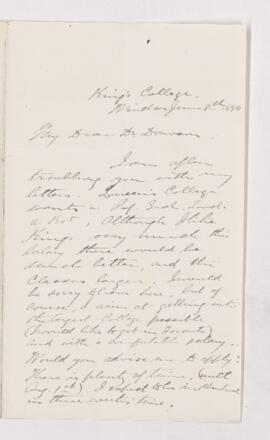 King's College,
Windsor June 8th 1880
My Dear Dr Dawson
I am often
troubling you with my
letters. Queen's College
wants a Prof. Geol., Zool.
& Bot., Although I like
King's very much the
salary there would be
much better, and the
Classes larger. I would
be sorry to leave here, but of
course I aim at getting into
the largest College possible
(I would like to get in Toronto)
and with a respectable salary.
Would you advise me to apply?
There is plenty of time, (until
Aug 1st). I expect to be in Montreal
in three weeks time.